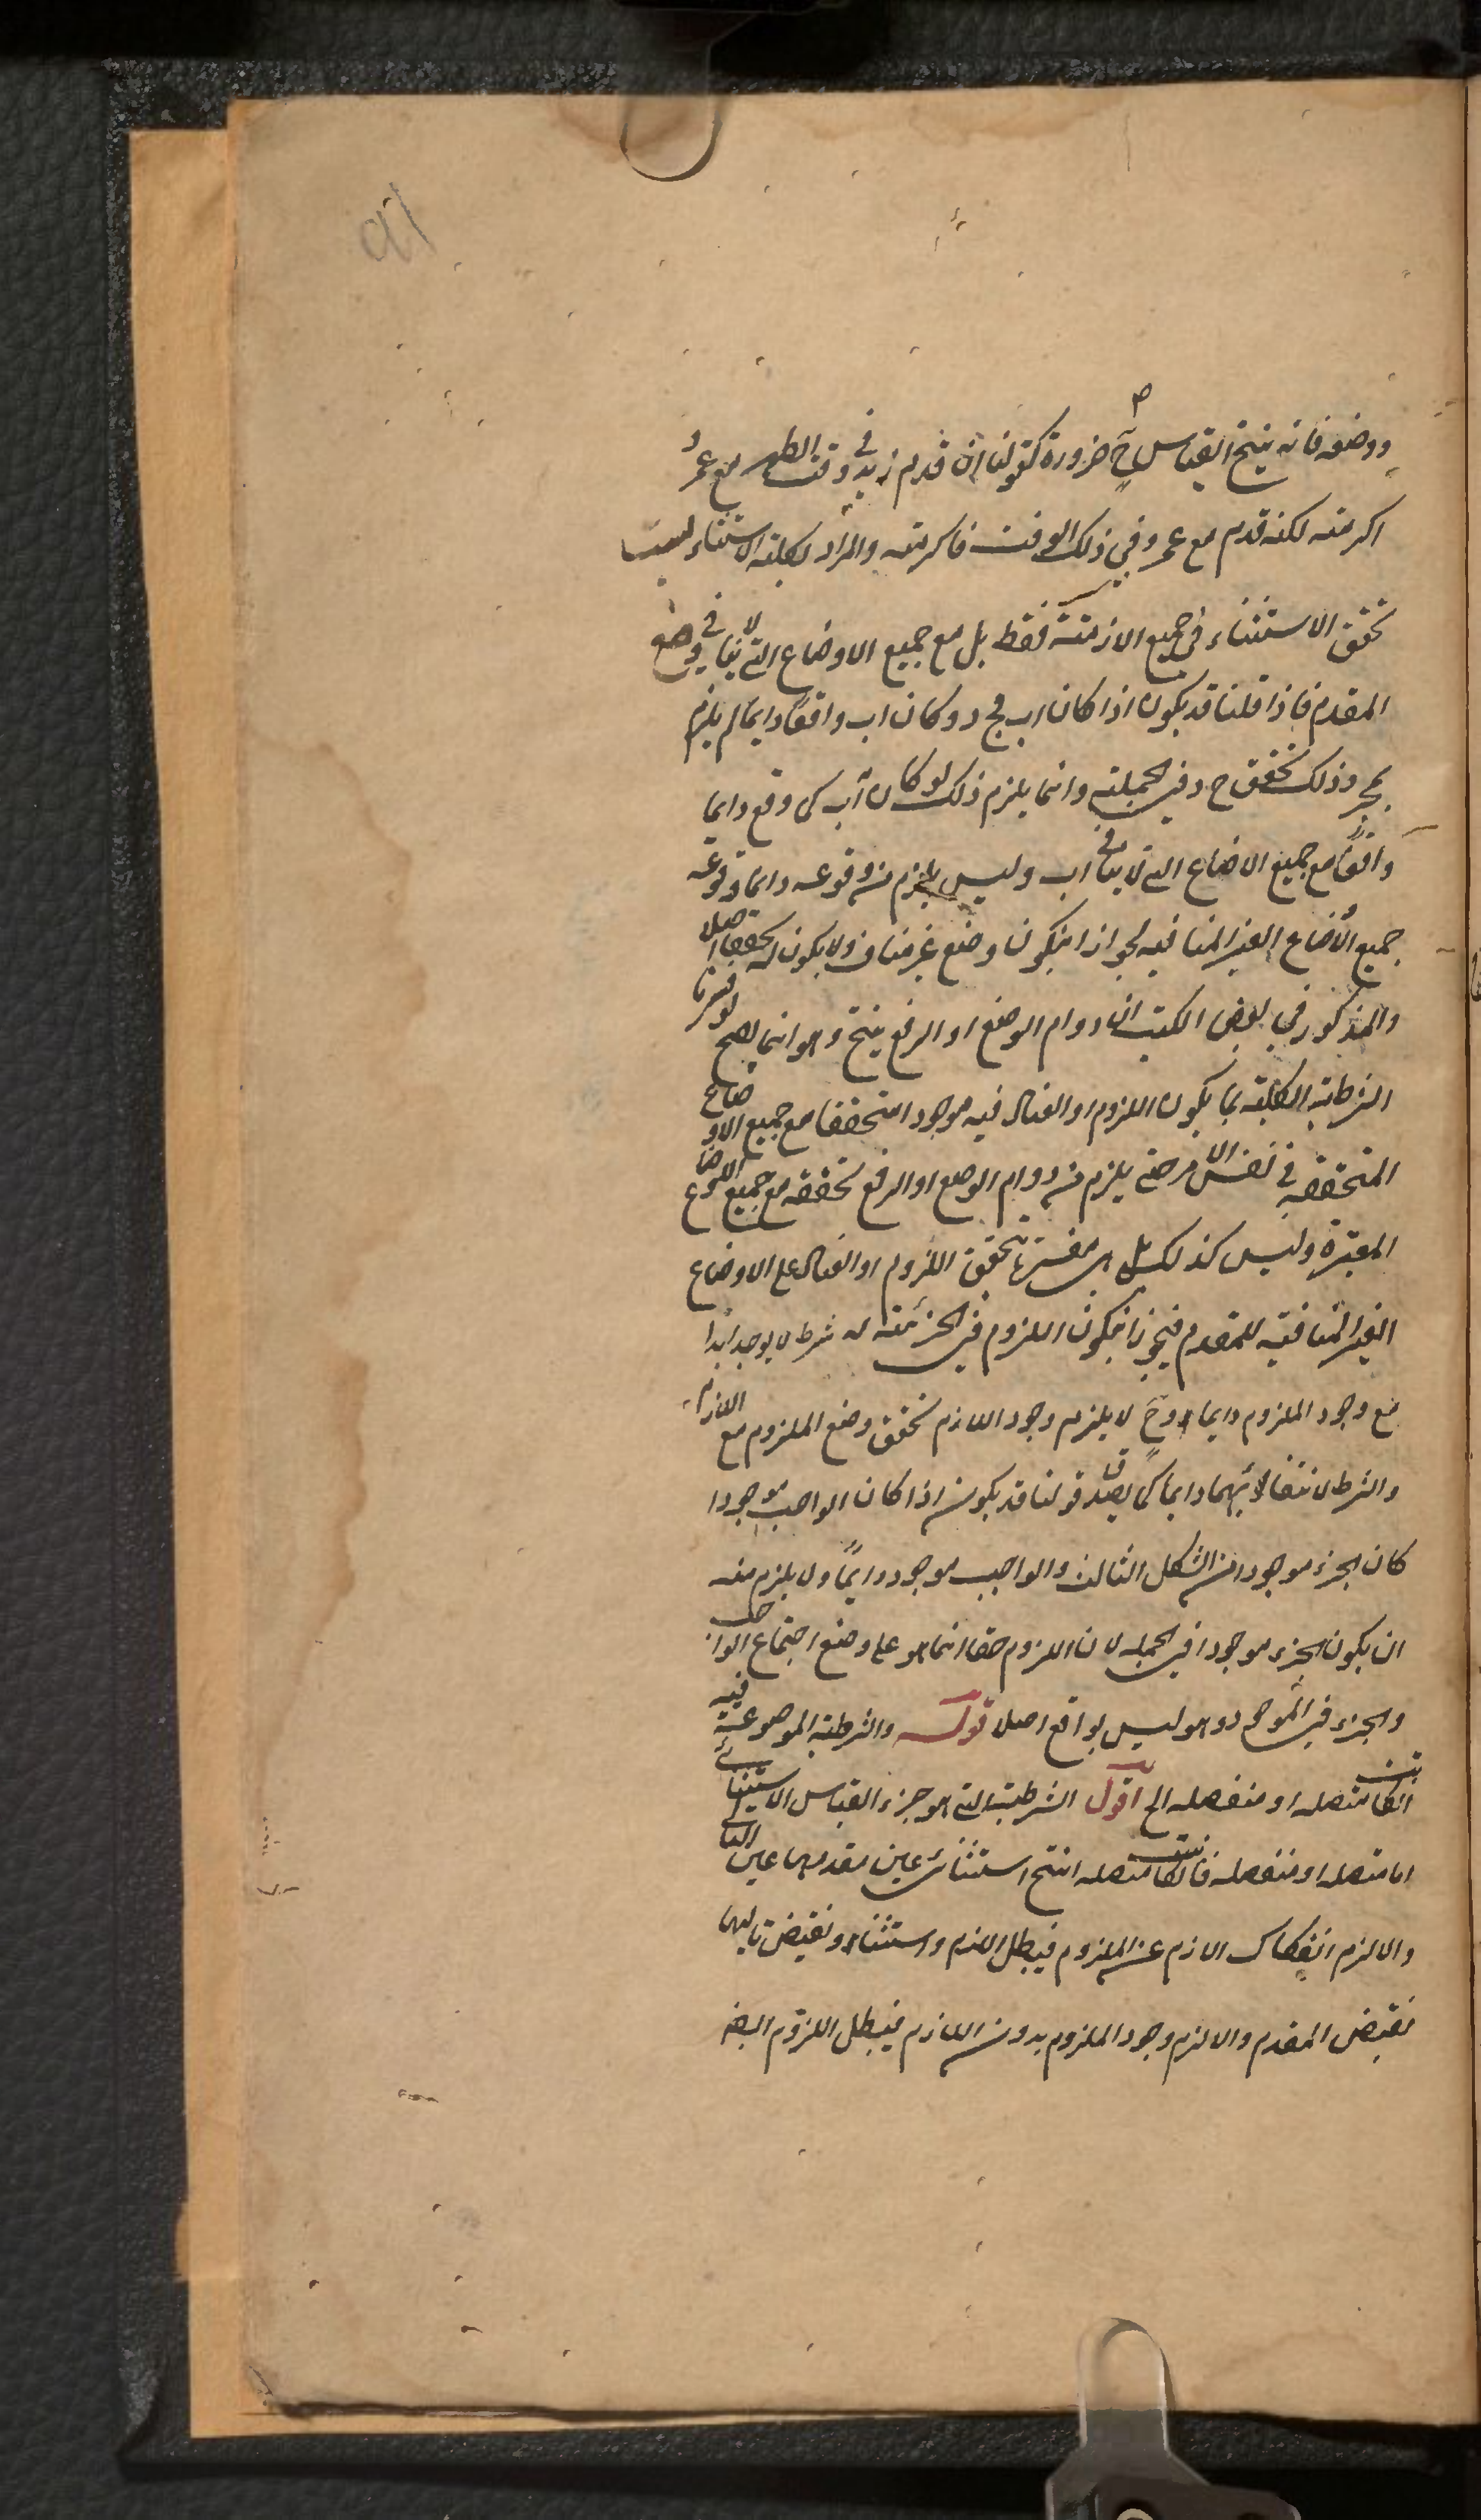 ووضعه فانه ينتج القياس ح ضرورة كقولنا ان قدم زيد في وقت الظهر مع عمرو
اكرمته لكنه قدم مع عمرو في ذلك الوقت فاكرمته والمراد بكلية الاستثناء ليست
تحقق الاستثناء في جميع الازمنة فقط بل مع جميع الاوضاع التي لا ينافي وضع
المقدم فاذا قلنا قد يكون اذا كان اب فج د وكان اب واقعا دايما لم يلزم
بمجرد ذلك تحقق ج د في الجملة وانما يلزم ذلك لو كان اب كما وقع دايما
واقعا مع جميع الاضاع التي لا ينافي اب وليس يلزم من وقوعه دايما وقوعه
جميع الأوضاع الغير المنافيه لجواز ان يكون وضع غير مناف ولا يكون له تحقق اصلا
والمذكور في بعض الكتب ان دوام الوضع او الرفع ينتج وهو انما يصح لو فسرنا
الشرطية الكلية بما يكون اللزوم او العناد فيه موجودا متحققا مع جميع الاوضاع
المتحققه في نفس الامر حتى يلزم من دوام الوضع او الرفع تحققه مع جميع الاوضاع
المعتبرة وليس كذلك بل هي مفسرة بتحقق اللزوم او العناد على الاوضاع
الغير المنافيه للمقدم فيجوز ان يكون اللزوم في الجزئية له شرط لا يوجد ابدا
مع وجود الملزوم دايما وح لا يلزم وجود اللازم تحقق وضع الملزوم مع اللازم
والشرط لانتفائهما دايما كما يصدق قولنا قد يكون اذا كان الواجب موجودا
كان الجزء موجودا من الشكل الثالث والواجب موجود دايما ولا يلزم منه
ان يكون الجزء موجودا في الجمله لان اللزوم حقا انما هو على وضع اجتماع الواجب
والجزء في الموجود وهو ليس بواقع اصلا قوله والشرطية الموضوعة فيه
ان كانت متصله او منفصله الخ اقول الشرطية التي هو جزء القياس الاستثنائي
اما متصله او منفصله فان كانت متصله انتج استثنائ عين مقدمها عين التالي
والا لزم انفكاك الازم عن الملزوم فيبطل اللزم واستثناء ونقيض تاليها
نقيض المقدم والا لزم وجود الملزوم بدون اللازم فيبطل اللزوم ايضا